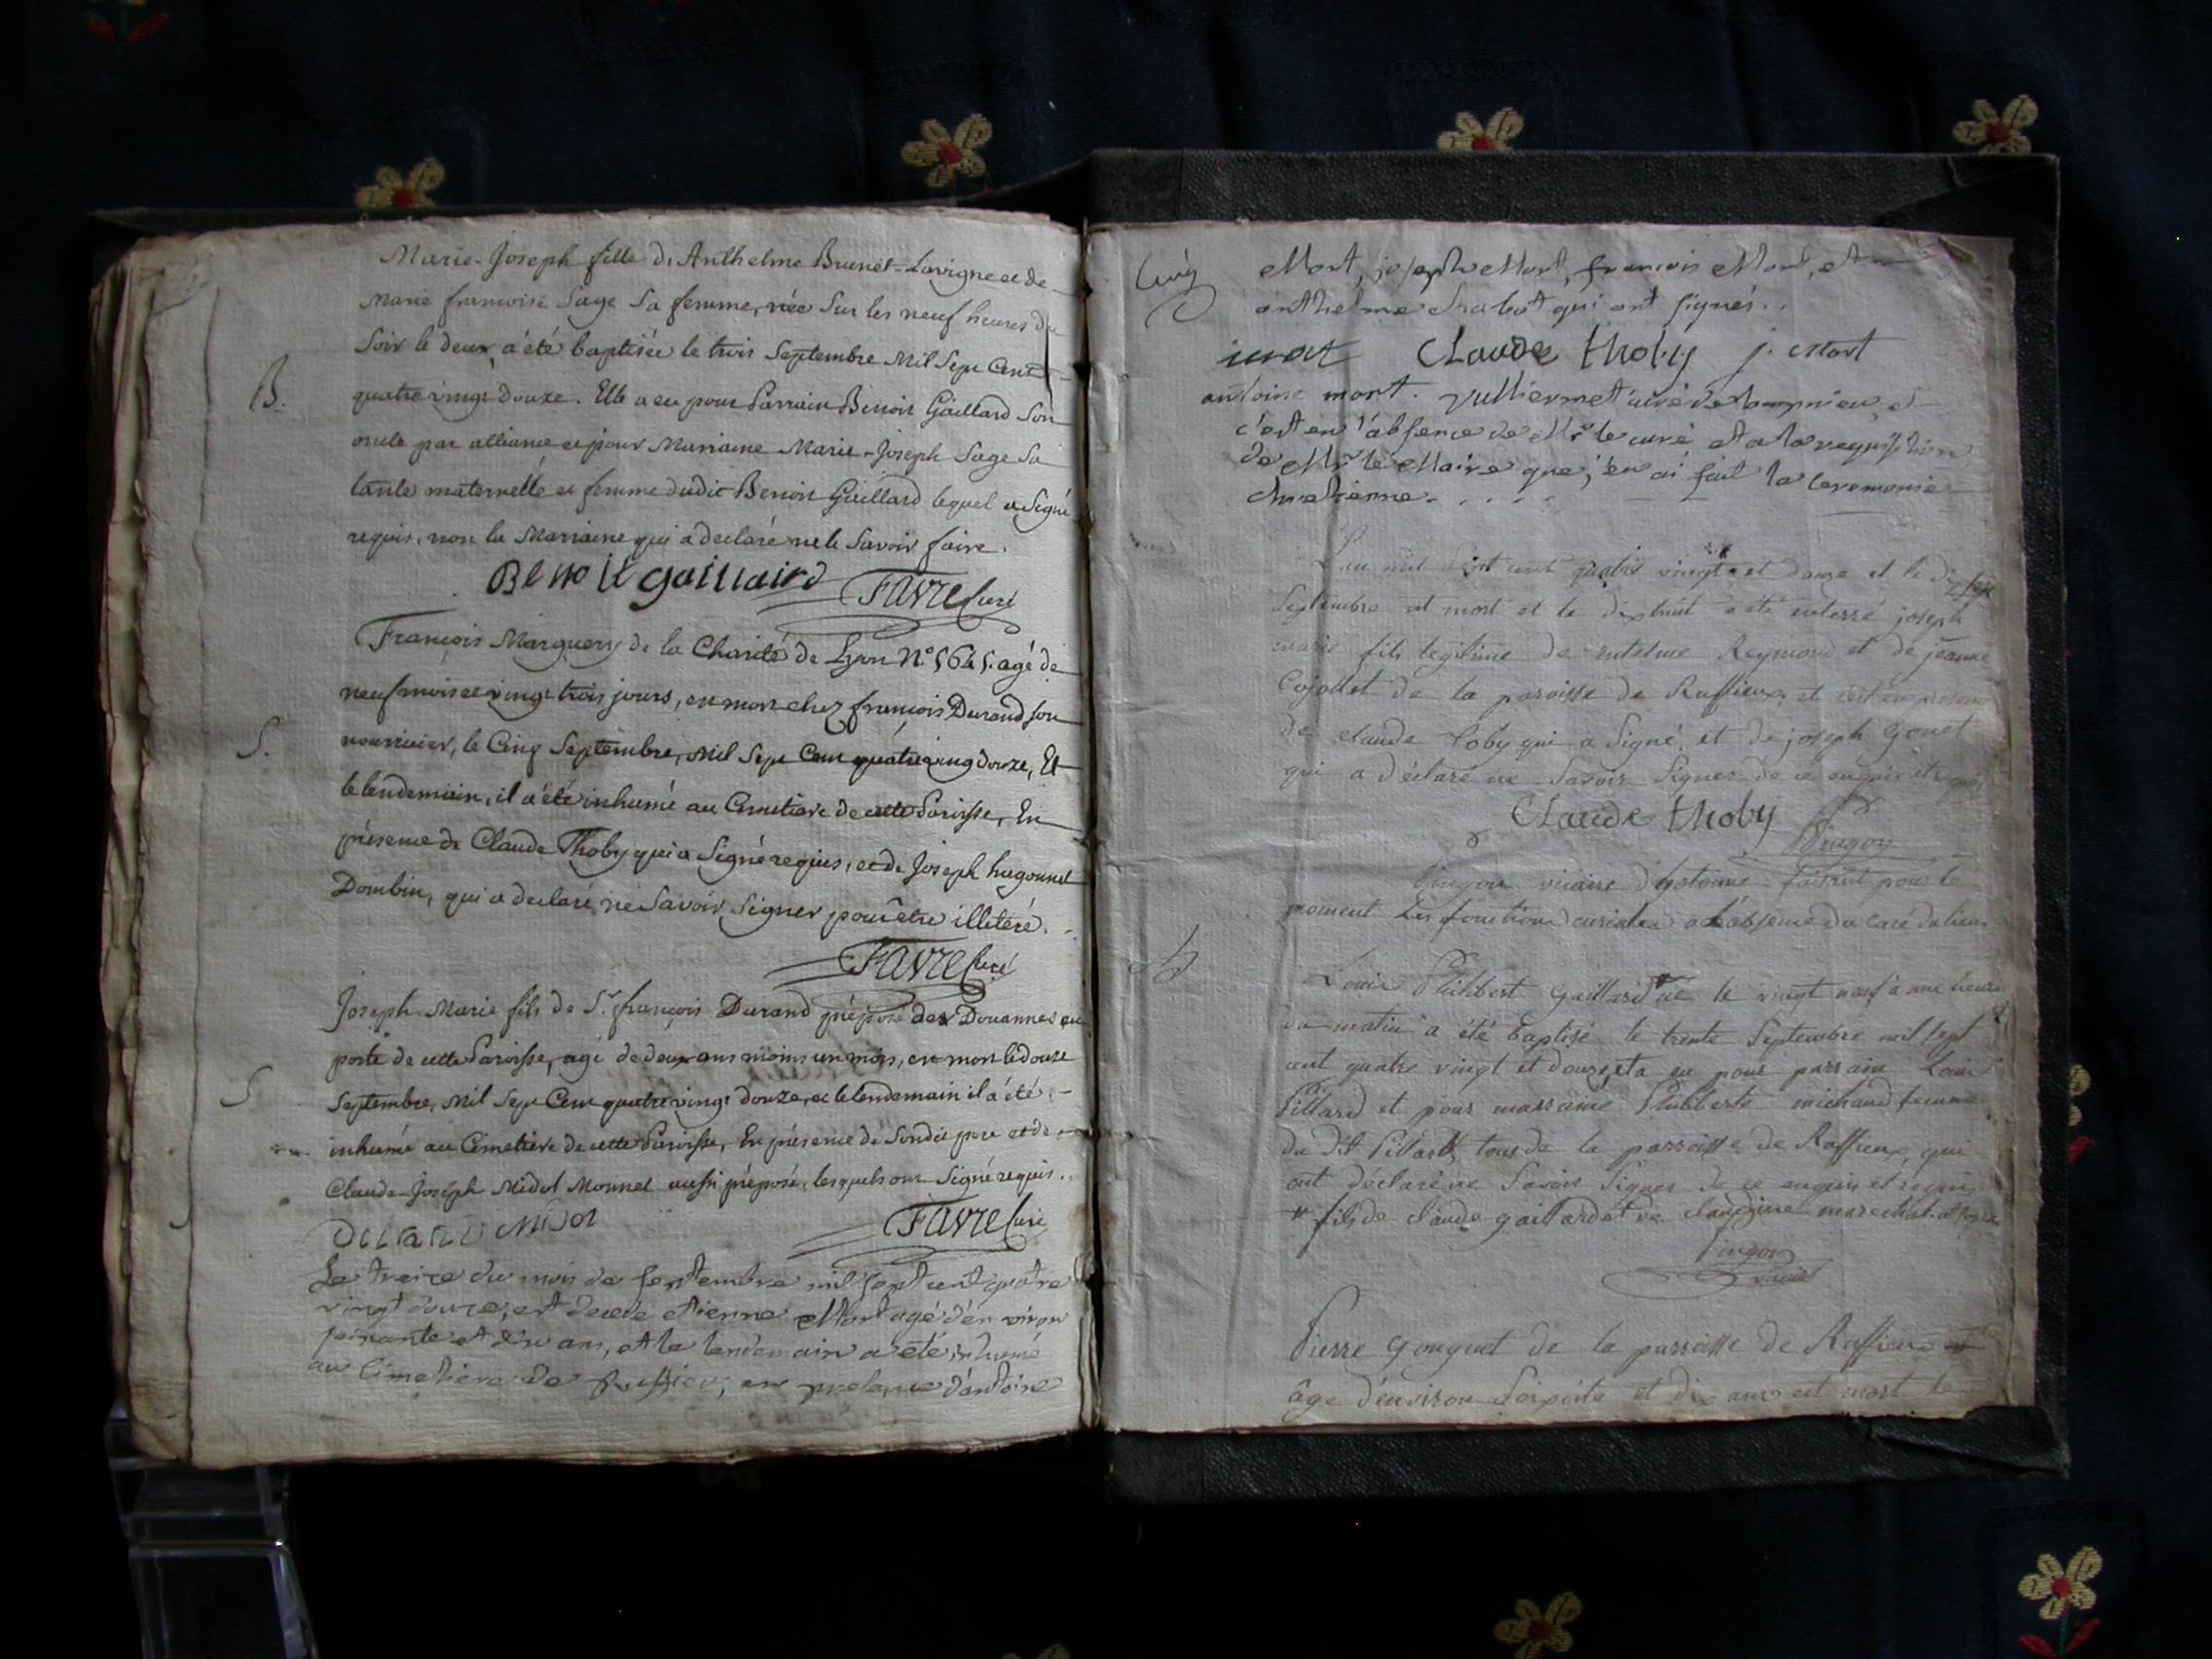 Marie-Joseph fille d'Anthelme Brunet-Lavigne et de
Marie francoise Sage Sa femme, née Sur les neuf heures du
B.
Soir le deux, a été baptisée le trois Septembre Mil Sept Cent
quatre vingt douze. Elle a eu pour Parrain Benoit Gaillard Son
oncle par alliance et pour Marraine Marie-Joseph Sage Sa
tante maternelle et femme dudit Benoit Gaillard lequel a Signé
requis, non la Marraine qui a declaré ne le Savoir faire.
Benoit gaillaird Favre Curé
François Marguery de la Charité de Lyon N.° agé de
neuf mois et vingt trois jours, est mort chez françois Durand son
S.
nourricier, le Cinq Septembre, Mil Sept Cent quatre vingt douze, Et
le lendemain, il a été inhumé au Cimetiere de cette Paroisse, En
présence de Claude Thoby qui a Signé requis, et de Joseph hugonnet
Dombin, qui a declaré ne Savoir Signer pour être illeteré.
Favre Curé
Joseph-Marie fils de S.r françois Durand préposé des Douannes au
poste de cette Paroisse, agé de deux ans moins un mois, est mort le douze
S
Septembre, Mil Sept Cent quatre vingt douze, et le lendemain il a été
inhumé au Cimetiere de cette Paroisse, En présence de Sondit pere et de
Claude-Joseph Midol Monnet aussi préposé, lesquels ont Signé requis.
Durand Midol Favre Curé
Le treize du mois de septembre mil sept cent quatre
vingt douze, est decedé etienne Mort agé d'environ
ans, et le lendemain a été inhumé
au Cimetiere de Ruffieu, en presence d'antoine
Mort, joseph Mort, francois Mort, et
anthelme Chabot qui ont signés..
Claude thoby j. Mort
antoine mort. Vulliermet curé de et
c'est en l'absence de Mr le curé et a la requisition
de Mr le Maire que j'en ai fait la ceremonie
chretienne. . . . .
L'an mil Sept cent quatre vingt et douze et le dix sept
Septembre est mort et le dixhuit a été enterré joseph
marie fils legitime de entelme Reymond et de jeanne
Cojollet de la paroisse de Ruffieux, et c'est en presence
de claude Toby qui a Signé, et de joseph gonet
qui a déclaré ne Savoir Signer de ce enquis et requis
Claude thoby
Pingon
Pingon vicaire faisant pour le
moment les fonctions curiales a l'absence du curé du lieu.
Louis Philibert gaillard né le vingt neuf a une heure
du matin a été baptisé le trente Septembre mil sept
cent quatre vingt et douze et a eu pour parrain Louis
Pillard et pour marraine Philiberte michaud femme
du dit Pillard, tous de la parroisse de Ruffieux, qui
ont déclaré ne Savoir Signer de ce enquis et requis,
fils de claude gaillard et de claudine marechal
Pingon
vicaire
Pierre gonguet de la parroisse de Ruffieux
âge d'environ Soixante et dix ans est mort le